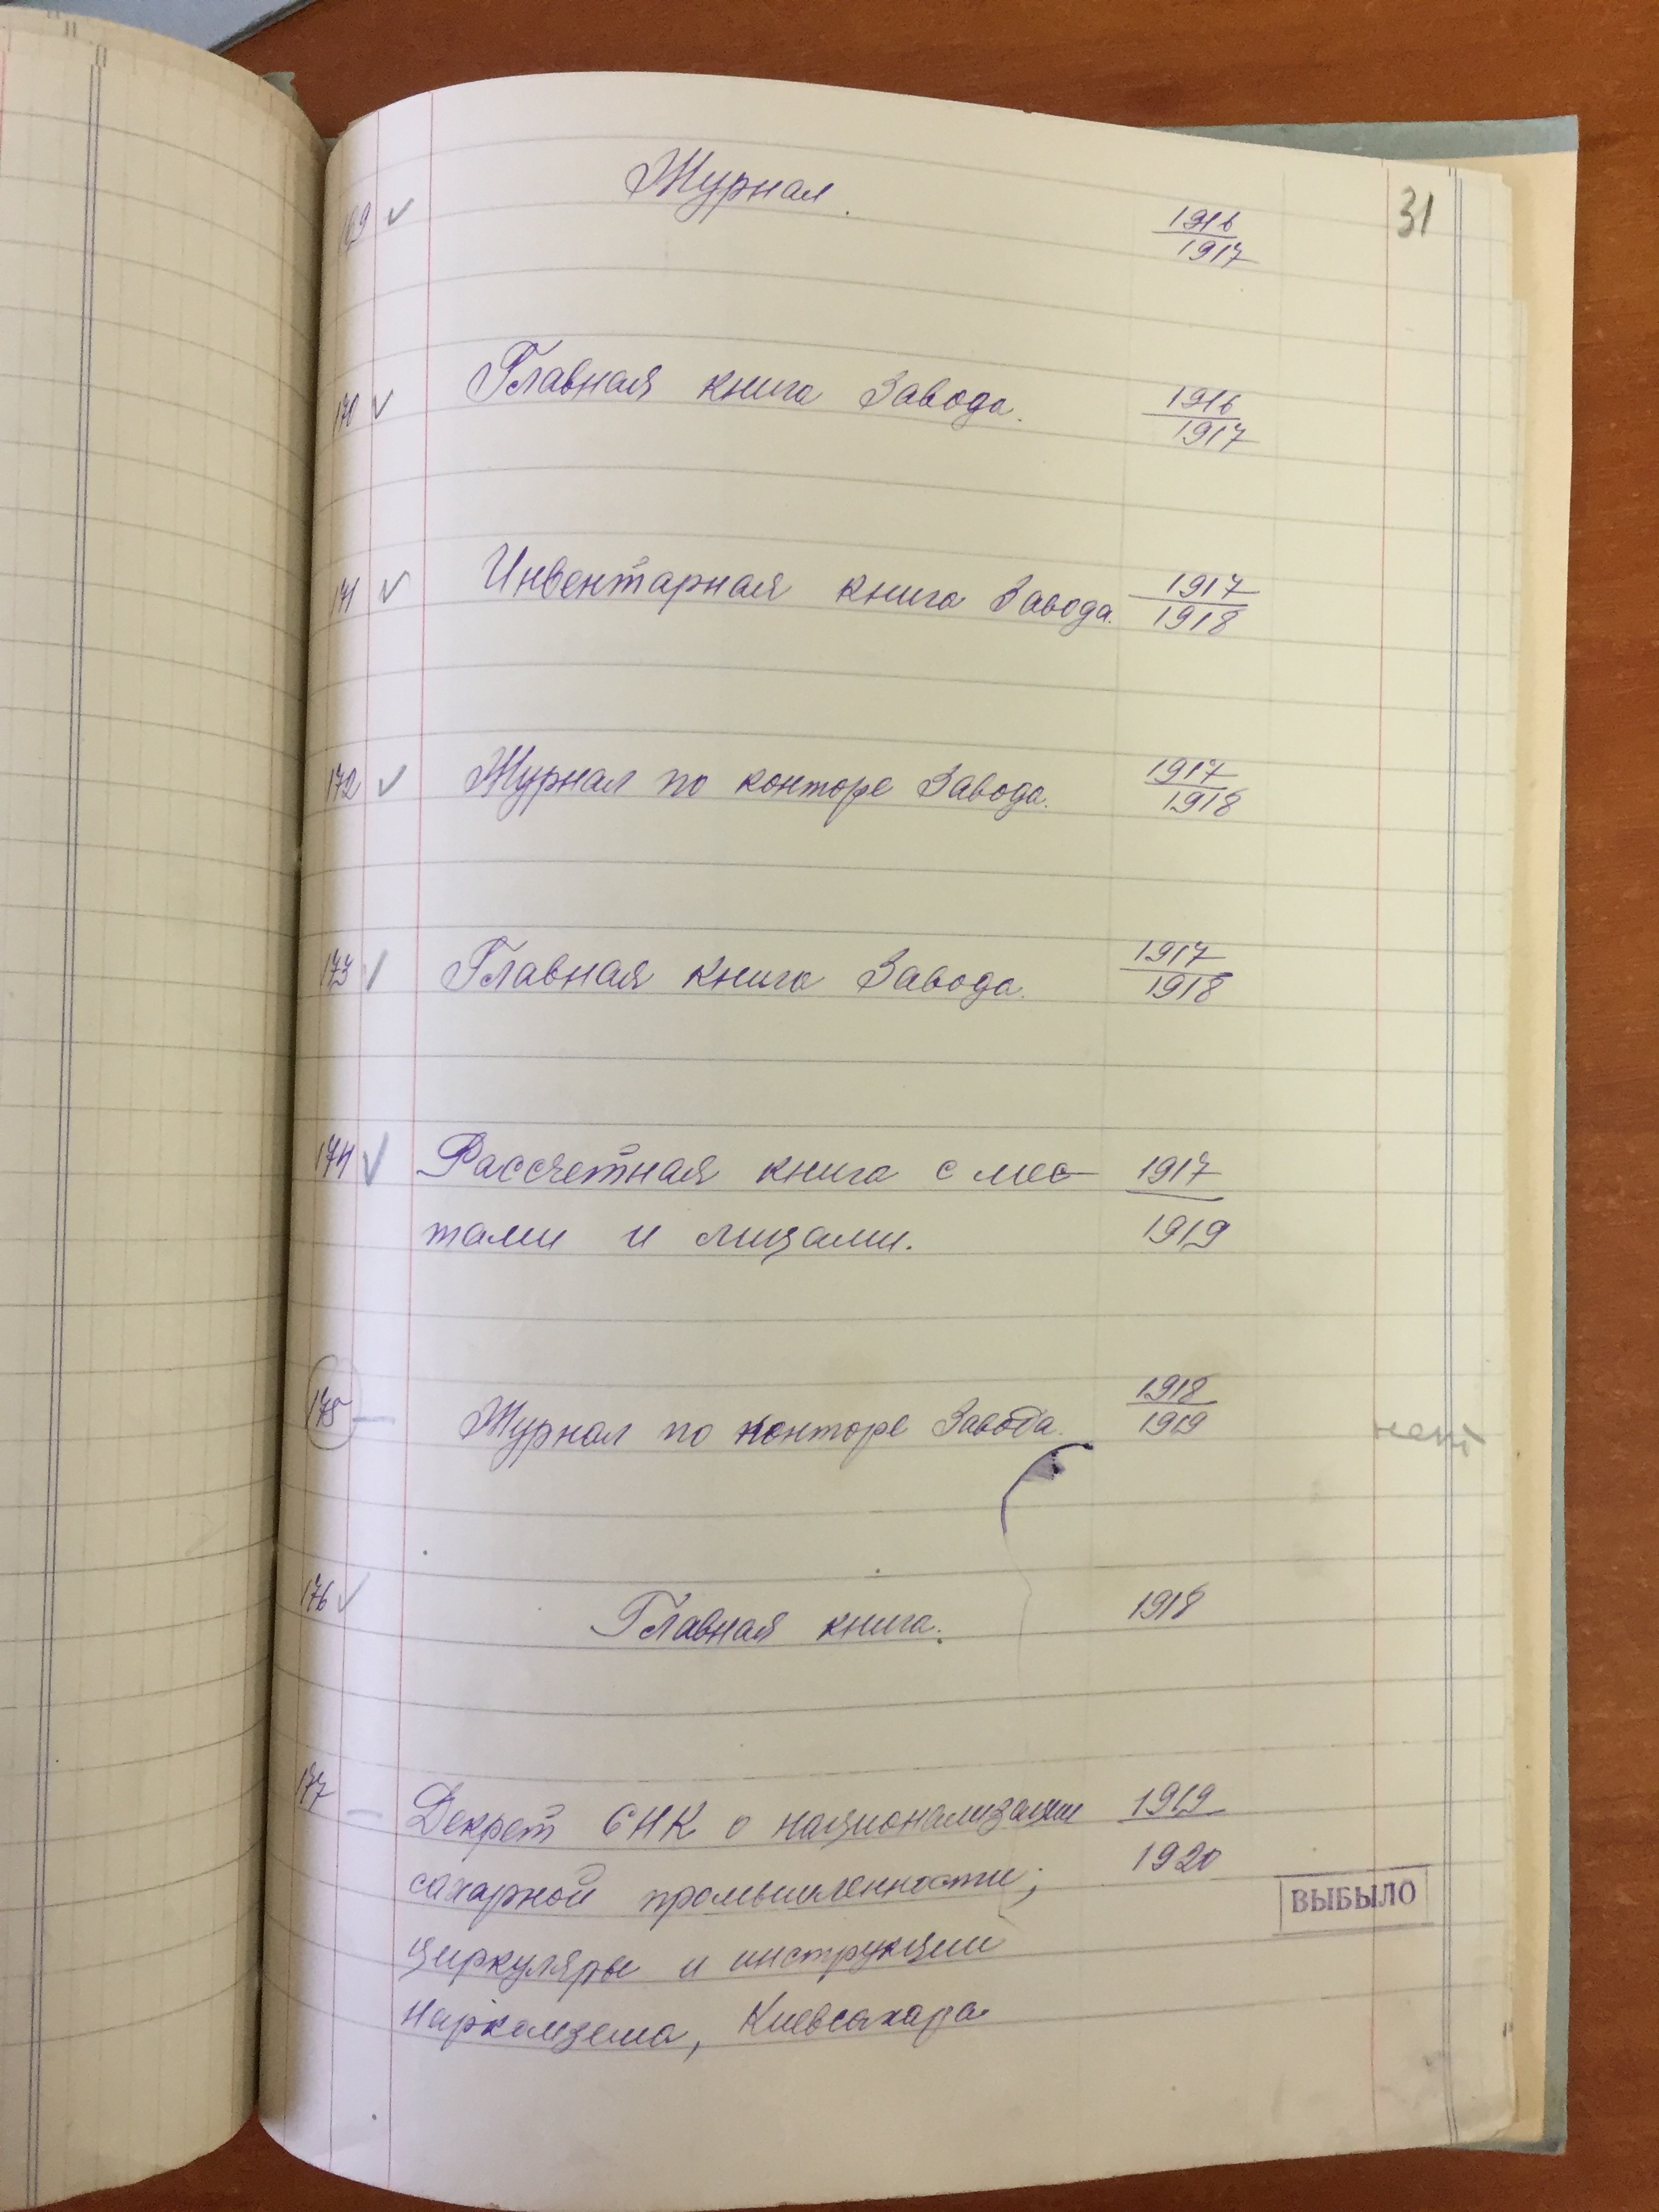 31
169 ✓ Журнал. 1916
1917
170 ✓ Главная книга Завода. 1916
1917
171 ✓ Инвентарная книга Завода. 1917
1918
172 ✓ Журнал по конторе Завода. 1917
1918
173 ✓ Главная книга Завода. 1917
1918
174 ✓ Рассчетная книга с мес- 1917
тами и лицами. 1919
175 — Журнал по конторе Завода. 1918
1919
нет
176 ✓ Главная книга. 1918
177 — Декрет СНК о национализации 1919
сахарной промышленности; 1920
ВЫБЫЛО
циркуляры и инструкции
Наркомзема, Киевсахара